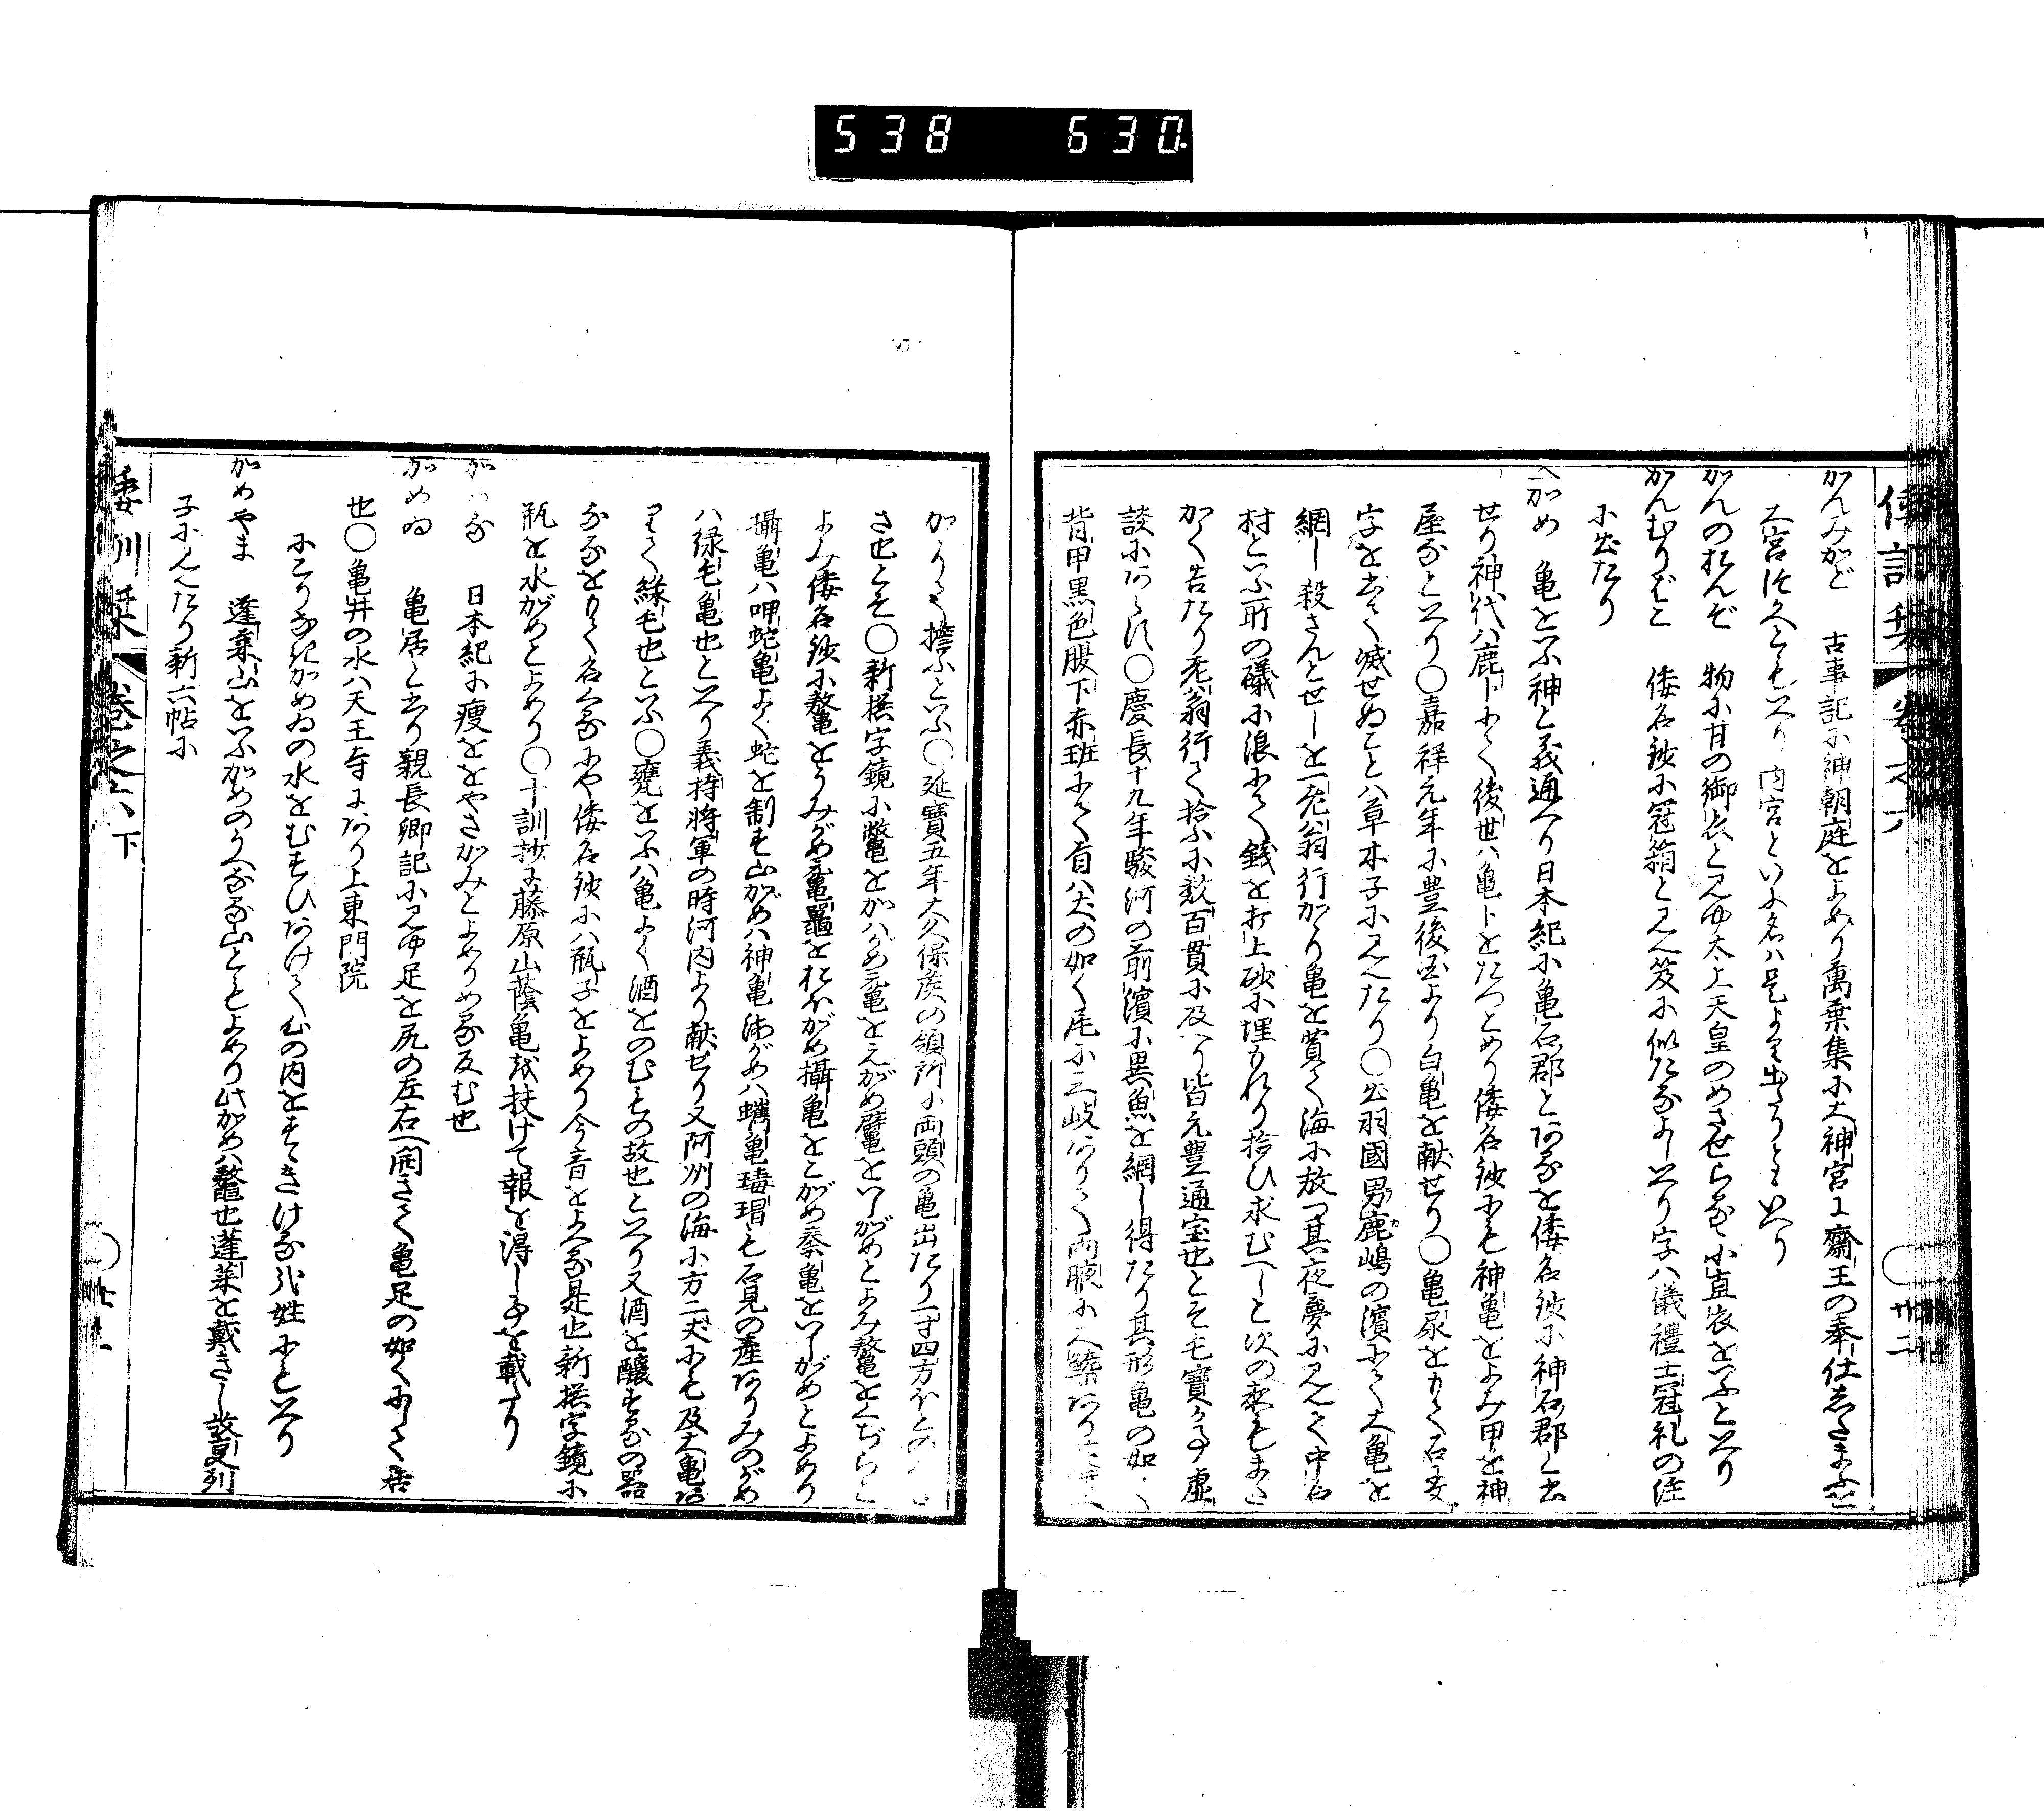 538 630
がんみかど 古事記に神朝庭をよめり萬葉集に大神宮に齋王の奉仕したまふを
大宮つかへともいへり内宮といふ名は是より出たりともいへり
かんのおんぞ 物に甘の御衣と見ゆ太上天皇のめさせらるゝ小直衣をいふといへり
かんむりばこ 倭名鈔に冠箱と見え笈に似たるよしいへり字は儀禮士冠礼の注
に出たり
かめ 亀をいふ神と義通へり日本紀に亀石郡とあるを倭名鈔に神石郡と出
せり神代ハ鹿卜にて後世ハ亀卜をたつとめり倭名鈔にも神亀とよみ甲を神
屋なといへり○嘉祥元年に豊後国より白亀を献せり○亀尿をもて石に
字を書て滅せぬことハ草木子に見えたり○出羽國男鹿嶋の濱にて大亀を
網し殺さんとせしを一老翁行かゝり亀を買て海に放つ其夜夢に見えて中石
村といふ所の礒に浪にて銭を打上砂に埋もれり拾ひ求むへしと次の夜もまた
かく告たり老翁行て拾ふに数百貫に及へり皆元豊通宝也とそ毛寶か事虚
談にあらす○慶長十九年駿河の前濱に異魚を網し得たり其形亀の如く
背甲黒色腹下赤班にて首ハ犬の如く尾に三岐ありて両腋に
かゝりて擔ふといふ○延寶五年大久保侯の領所に両頭の亀出たり一寸四方ほとの
さ也とそ○新撰字鏡に鼈をかハかめ元亀をえがめ𪓟をいしがめとよみ鼇をくぢらと
よみ倭名鈔に鼇をうみがめ元亀をおほがめ攝亀をこがめ秦亀をいしがめとよめり
攝亀ハ呷蛇亀よく蛇を制す山がめハ神亀海がめハ蠵亀瑇瑁も石見の産ありみのがめ
ハ緑毛亀也といへり義持将軍の時河内より献せり又阿州の海に方二丈にも及大亀あ
りて緑毛也といふ○甕をいふハ亀よく酒をのむもの故也といへり又酒を醸するの器
なるをもて名くるにや倭名鈔にハ瓶子をよめり今音をよへる是也新撰字鏡に
瓶を水がめとよめり○十訓抄に藤原山蔭亀を扶けて報を得し事を載たり
かめる 日本紀に痩をやさかみとよめりめる反む也
かめゐ 亀居と書り親長卿記に見ゆ足を尻の左右へ開きて亀足の如くにして居
也○亀井の水ハ天王寺にあり上東門院
にこりなきかめゐの水をむすひあけて心の内をすゝきける哉姓にもいへり
かめやま 蓬莱山をいふかめのうへなる山ともよめり此かめハ鼇也蓬莱を戴きし故事列
子に見えたり新六帖に
倭訓栞 巻之六 下